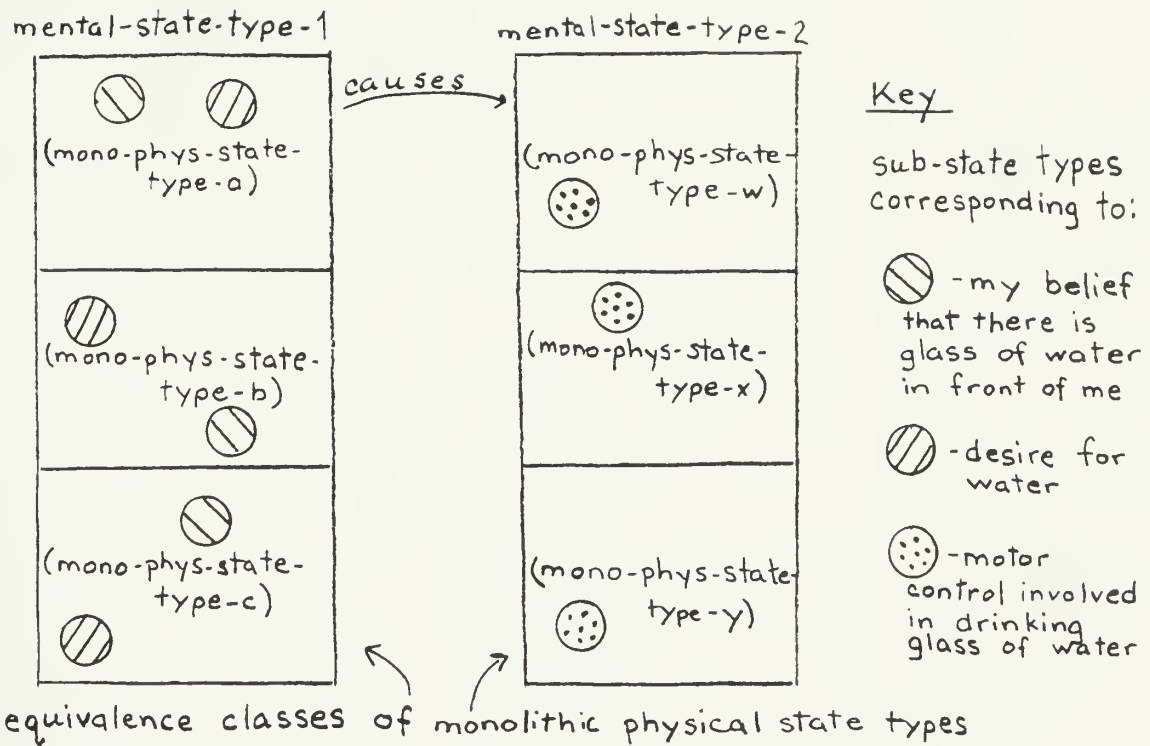 mental-state-type-1
causes
(mono-phys-state-
type-a)
(mono-phys-state-
type-b)
(mono-phys-state-
type-c)
mental-state-type-2
(mono-phys-state-
type-w)
(mono-phys-state-
type-x)
(mono-phys-state-
type-y)
Key
sub-state types
corresponding to:
-my belief
that there is
glass of water
in front of me
-desire for
water
-motor
control involved
in drinking
glass of water
equivalence classes of monolithic physical state types